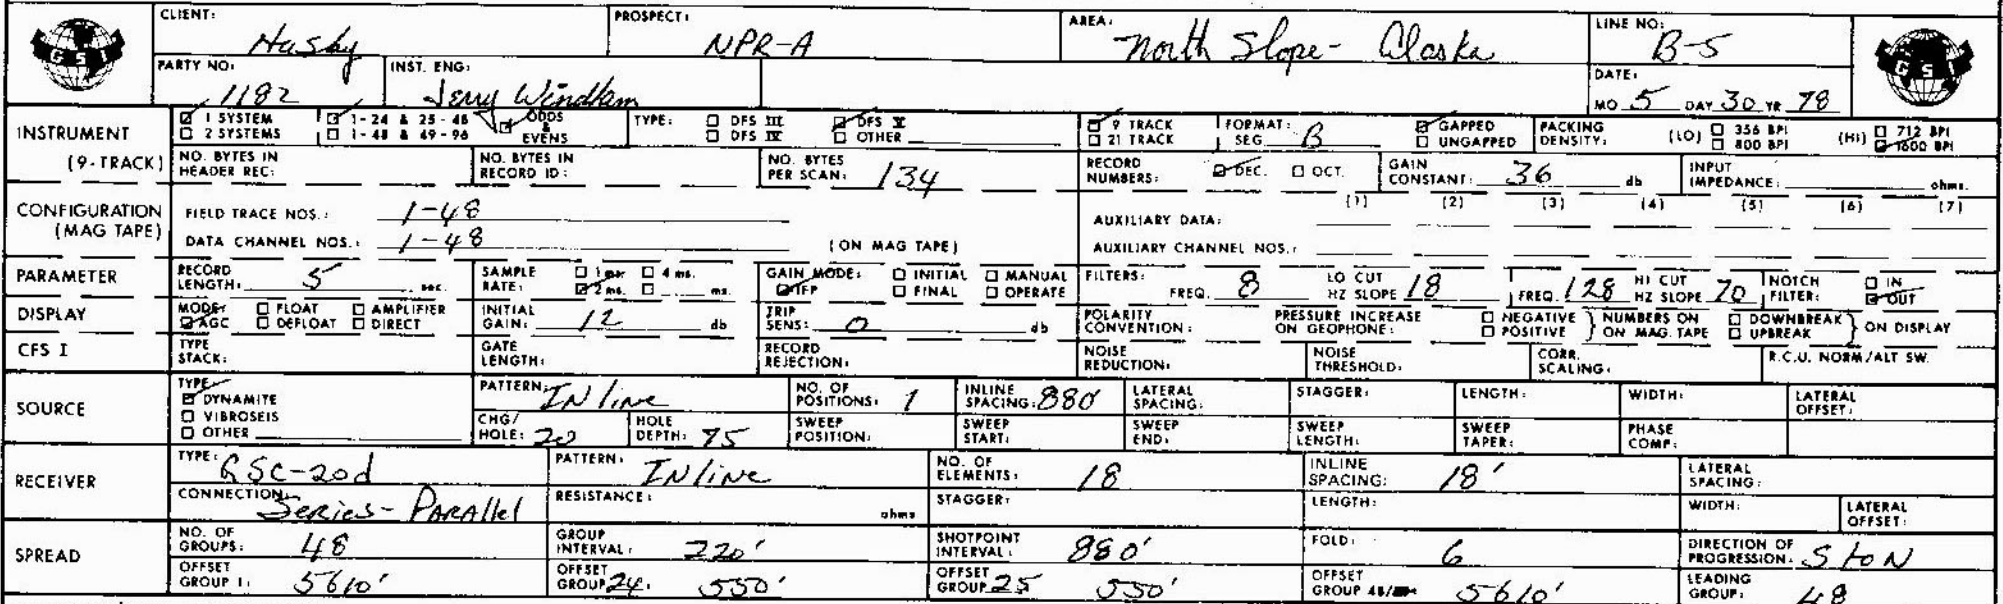 CLIENT: Husky PROSPECT: NPR-A AREA: North Slope - Alaska LINE NO: B-5
GSI GSI
PARTY NO: 1182 INST. ENG: Jerry Windham DATE: MO 5 DAY 30 YR 78
INSTRUMENT 1 SYSTEM 1-24 & 25-48 ODDS & EVENS TYPE: DFS III DFS V 9 TRACK FORMAT: SEG B GAPPED PACKING DENSITY: (LO) 356 BPI (HI) 712 BPI
2 SYSTEMS 1-48 & 49-96 DFS IV OTHER 21 TRACK UNGAPPED 800 BPI 1600 BPI
(9-TRACK) NO. BYTES IN HEADER REC: NO. BYTES IN RECORD ID: NO. BYTES PER SCAN: 134 RECORD NUMBERS: DEC. OCT. GAIN CONSTANT: 36 db INPUT IMPEDANCE: ohms.
CONFIGURATION (MAG TAPE) FIELD TRACE NOS.: 1-48 AUXILIARY DATA: (1) (2) (3) (4) (5) (6) (7)
DATA CHANNEL NOS.: 1-48 (ON MAG TAPE) AUXILIARY CHANNEL NOS.:
PARAMETER RECORD LENGTH: 5 sec. SAMPLE RATE: 1 ms. 4 ms. 2 ms. ms. GAIN MODE: INITIAL MANUAL IFP FINAL OPERATE FILTERS: FREQ. 8 LO CUT HZ SLOPE 18 FREQ. 128 HI CUT HZ SLOPE 70 NOTCH FILTER: IN OUT
DISPLAY MODE: FLOAT AMPLIFIER AGC DEFLOAT DIRECT INITIAL GAIN: 12 db TRIP SENS: 0 db POLARITY CONVENTION: PRESSURE INCREASE ON GEOPHONE: NEGATIVE POSITIVE NUMBERS ON ON MAG. TAPE DOWNBREAK UPBREAK ON DISPLAY
CFS I TYPE STACK: GATE LENGTH: RECORD REJECTION: NOISE REDUCTION: NOISE THRESHOLD: CORR. SCALING: R.C.U. NORM/ALT SW.
SOURCE TYPE DYNAMITE VIBROSEIS OTHER PATTERN: INline NO. OF POSITIONS: 1 INLINE SPACING: 880' LATERAL SPACING: STAGGER: LENGTH: WIDTH: LATERAL OFFSET:
CHG/HOLE: 20 HOLE DEPTH: 75 SWEEP POSITION: SWEEP START: SWEEP END: SWEEP LENGTH: SWEEP TAPER: PHASE COMP:
RECEIVER TYPE: GSC-20d PATTERN: INline NO. OF ELEMENTS: 18 INLINE SPACING: 18' LATERAL SPACING:
CONNECTION: Series-PARAllel RESISTANCE: ohms STAGGER: LENGTH: WIDTH: LATERAL OFFSET:
SPREAD NO. OF GROUPS: 48 GROUP INTERVAL: 220' SHOTPOINT INTERVAL: 880' FOLD: 6 DIRECTION OF PROGRESSION: S to N
OFFSET GROUP 1: 5610' OFFSET GROUP 24: 550' OFFSET GROUP 25 550' OFFSET GROUP 48/ 5610' LEADING GROUP: 48